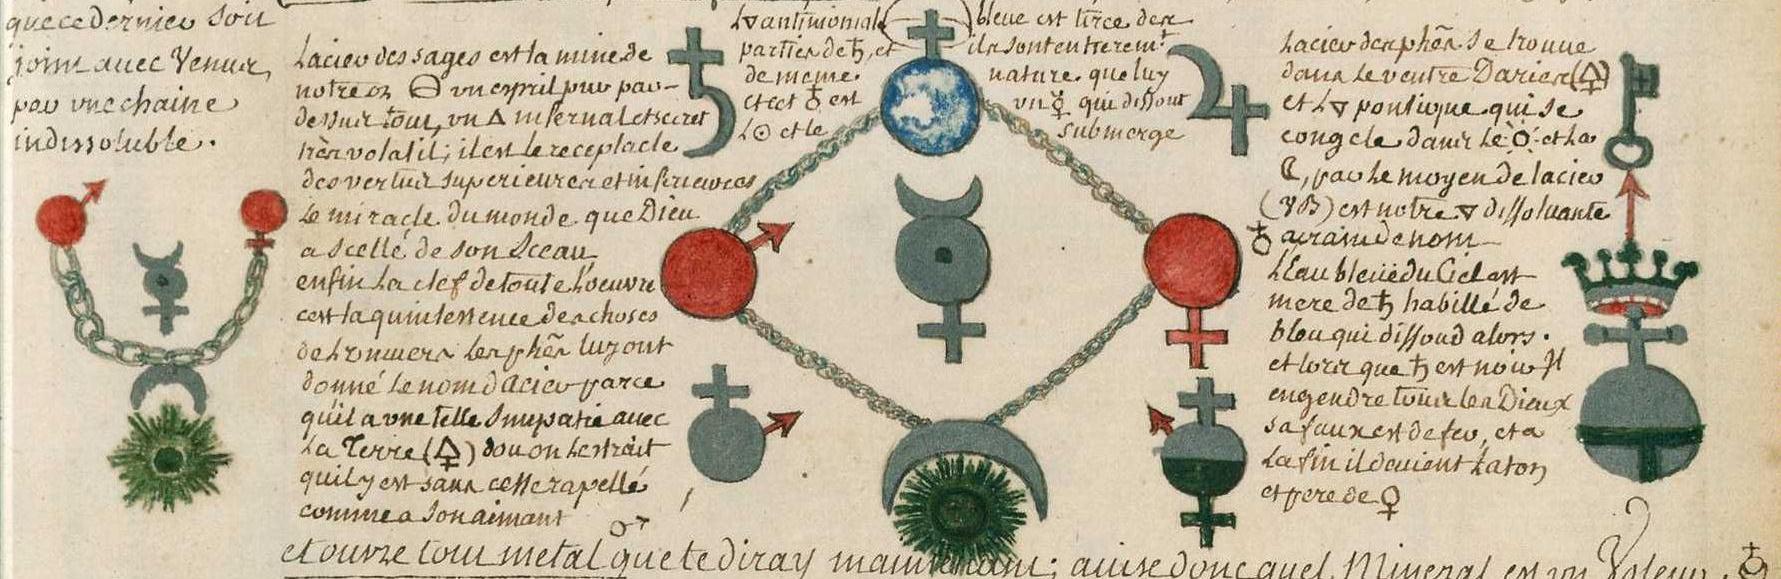 que ce dernier soit
joint avec Venus,
par une chaine
indissoluble.
Lacier des sages est la mine de
notre or 🜔 un esprit pur par-
dessus tout, un 🜂 infernal et secret
tres volatil; il est le receptacle
des vertus superieures et inferieures
Le miracle du monde que Dieu
a scellé de son Sceau,
enfin La clef de toute Loeuvre
cest la quintessence des choses
de Lunivers Les phẽs luy ont
donné Le nom dAcier parce
quil a une telle Simpatie avec
La Terre (🜍) dou on Lextrait
quil y est sans cesse rapellé
comme a son aimant
L🜄 antimoniale
parties de ♄, et
de meme.
et cet ♁ est
L☉ et le
bleue est tirce des
ils sont entierem.t
nature que luy
un ☿ qui dissout
submerge
Lacier des phẽs se trouve
dans Le ventre Daries (🜍)
et L🜄 pontique qui se
congele dans Le ☉ et La
☾, par Le moyen de lacier
(♈♉) est notre 🜄 dissolvante
♁ airain de nom
LEau bleüe du Ciel est
mere de ♄ habillé de
bleu qui dissoud alors.
et lors que ♄ est noir Jl
engendre tous Les Dieux
sa faux est de feu, et a
La fin il devient Laton
et pere de ♀
♂
et ouvre tout metal que te diray maintenant; avise donc quel Mineral est un Voleur ♁